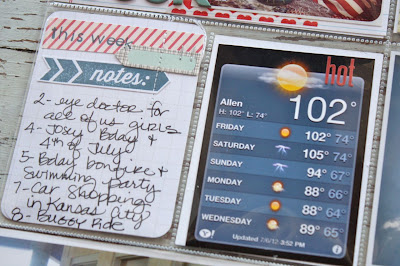 this week
notes:
2- eye doctor for
all of us girls
4- Josey Bday &
4th of July!
5- Bday bonfire &
swimming party
7- car shopping
in Kansas City
8- Buggy Ride
hot
Allen
H: 102° L: 74°
102°
FRIDAY 102° 74°
SATURDAY 105° 74°
SUNDAY 94° 67°
MONDAY 88° 66°
TUESDAY 88° 64°
WEDNESDAY 89° 65°
Y!
Updated 7/6/12 3:52 PM
i